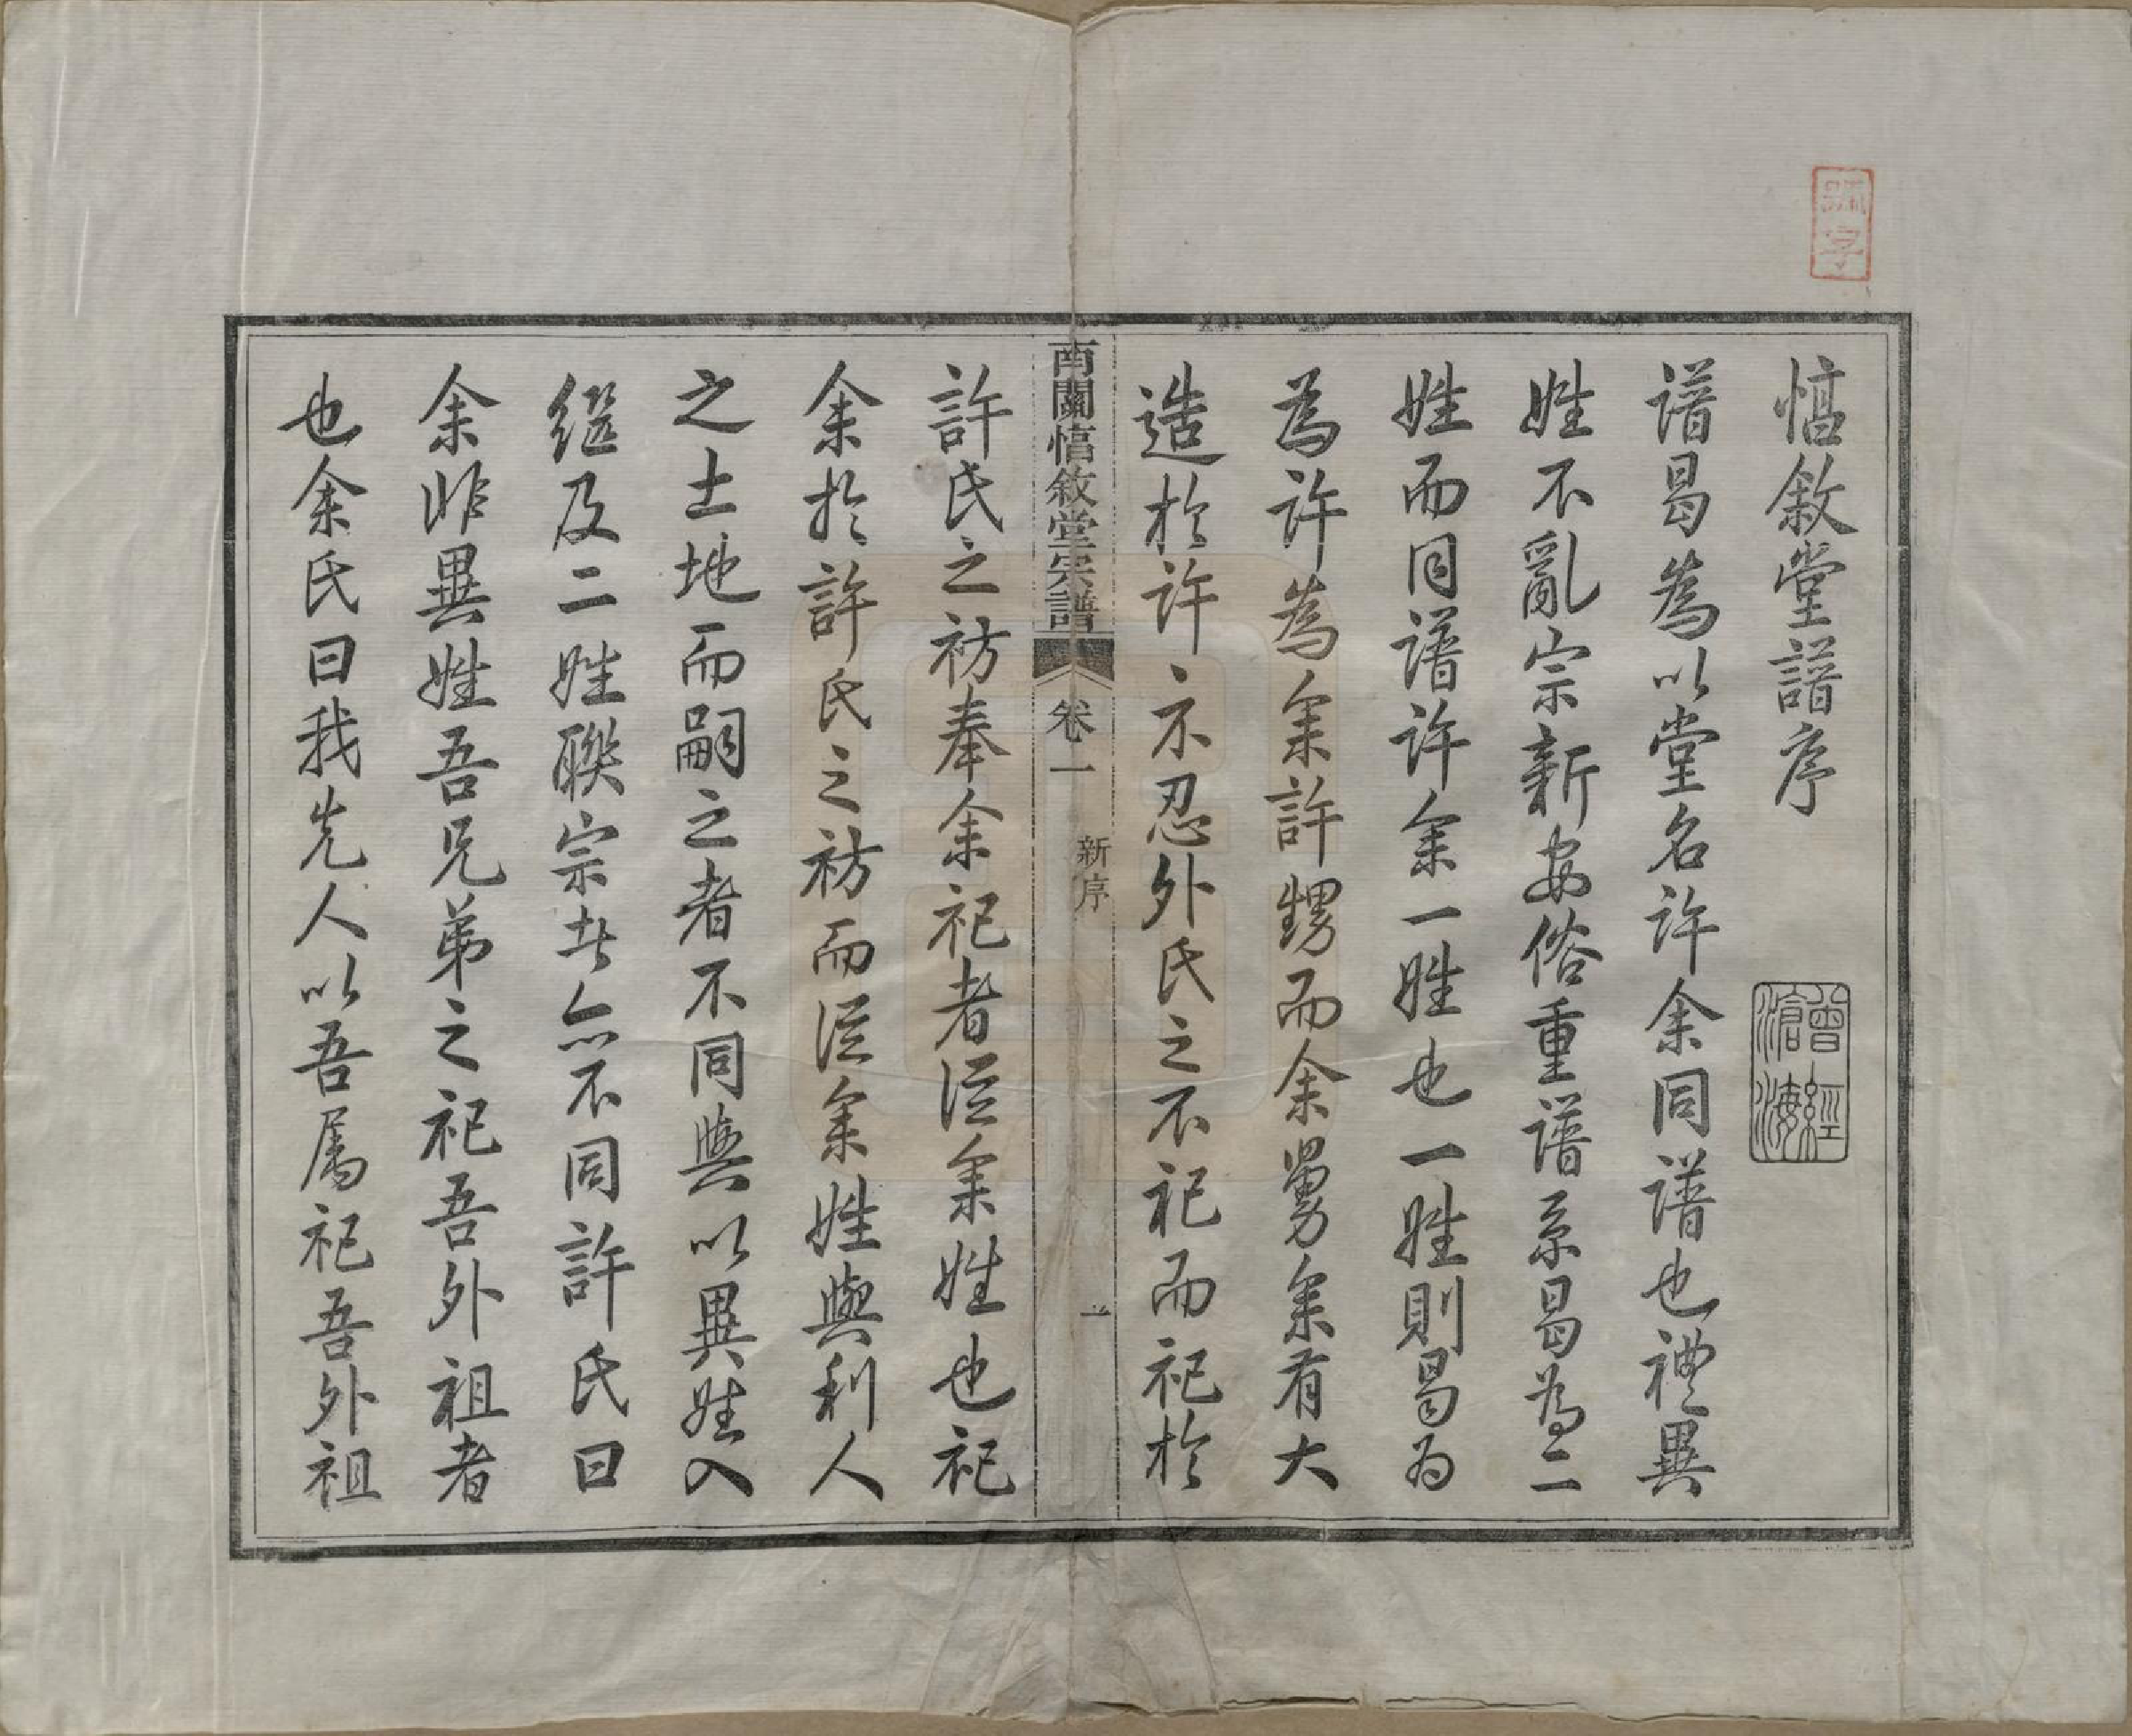 惇敘堂譜序
譜曷為以堂名許余同譜也禮異
姓不亂宗新安俗重譜系曷為二
姓而同譜許余一姓也一姓則曷為
為許為余許甥而余舅余有大
造於許許不忍外氏之不祀而祀於
許氏之祊奉余祀者從余姓也祀
余於許氏之祊而從余姓與利人
之土地而嗣之者不同與以異姓入
繼及二姓聯宗者亦不同許氏曰
余非異姓吾兄弟之祀吾外祖者
也余氏曰我先人以吾屬祀吾外祖
南關惇敘堂宗譜
卷一
新序
一
曾經滄海
號字